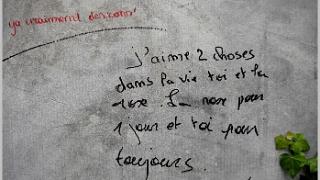 ya vraiment des cons
j'aime 2 choses
dans la vie toi et la
rose. La rose pour
1 jour et toi pour
toujours.